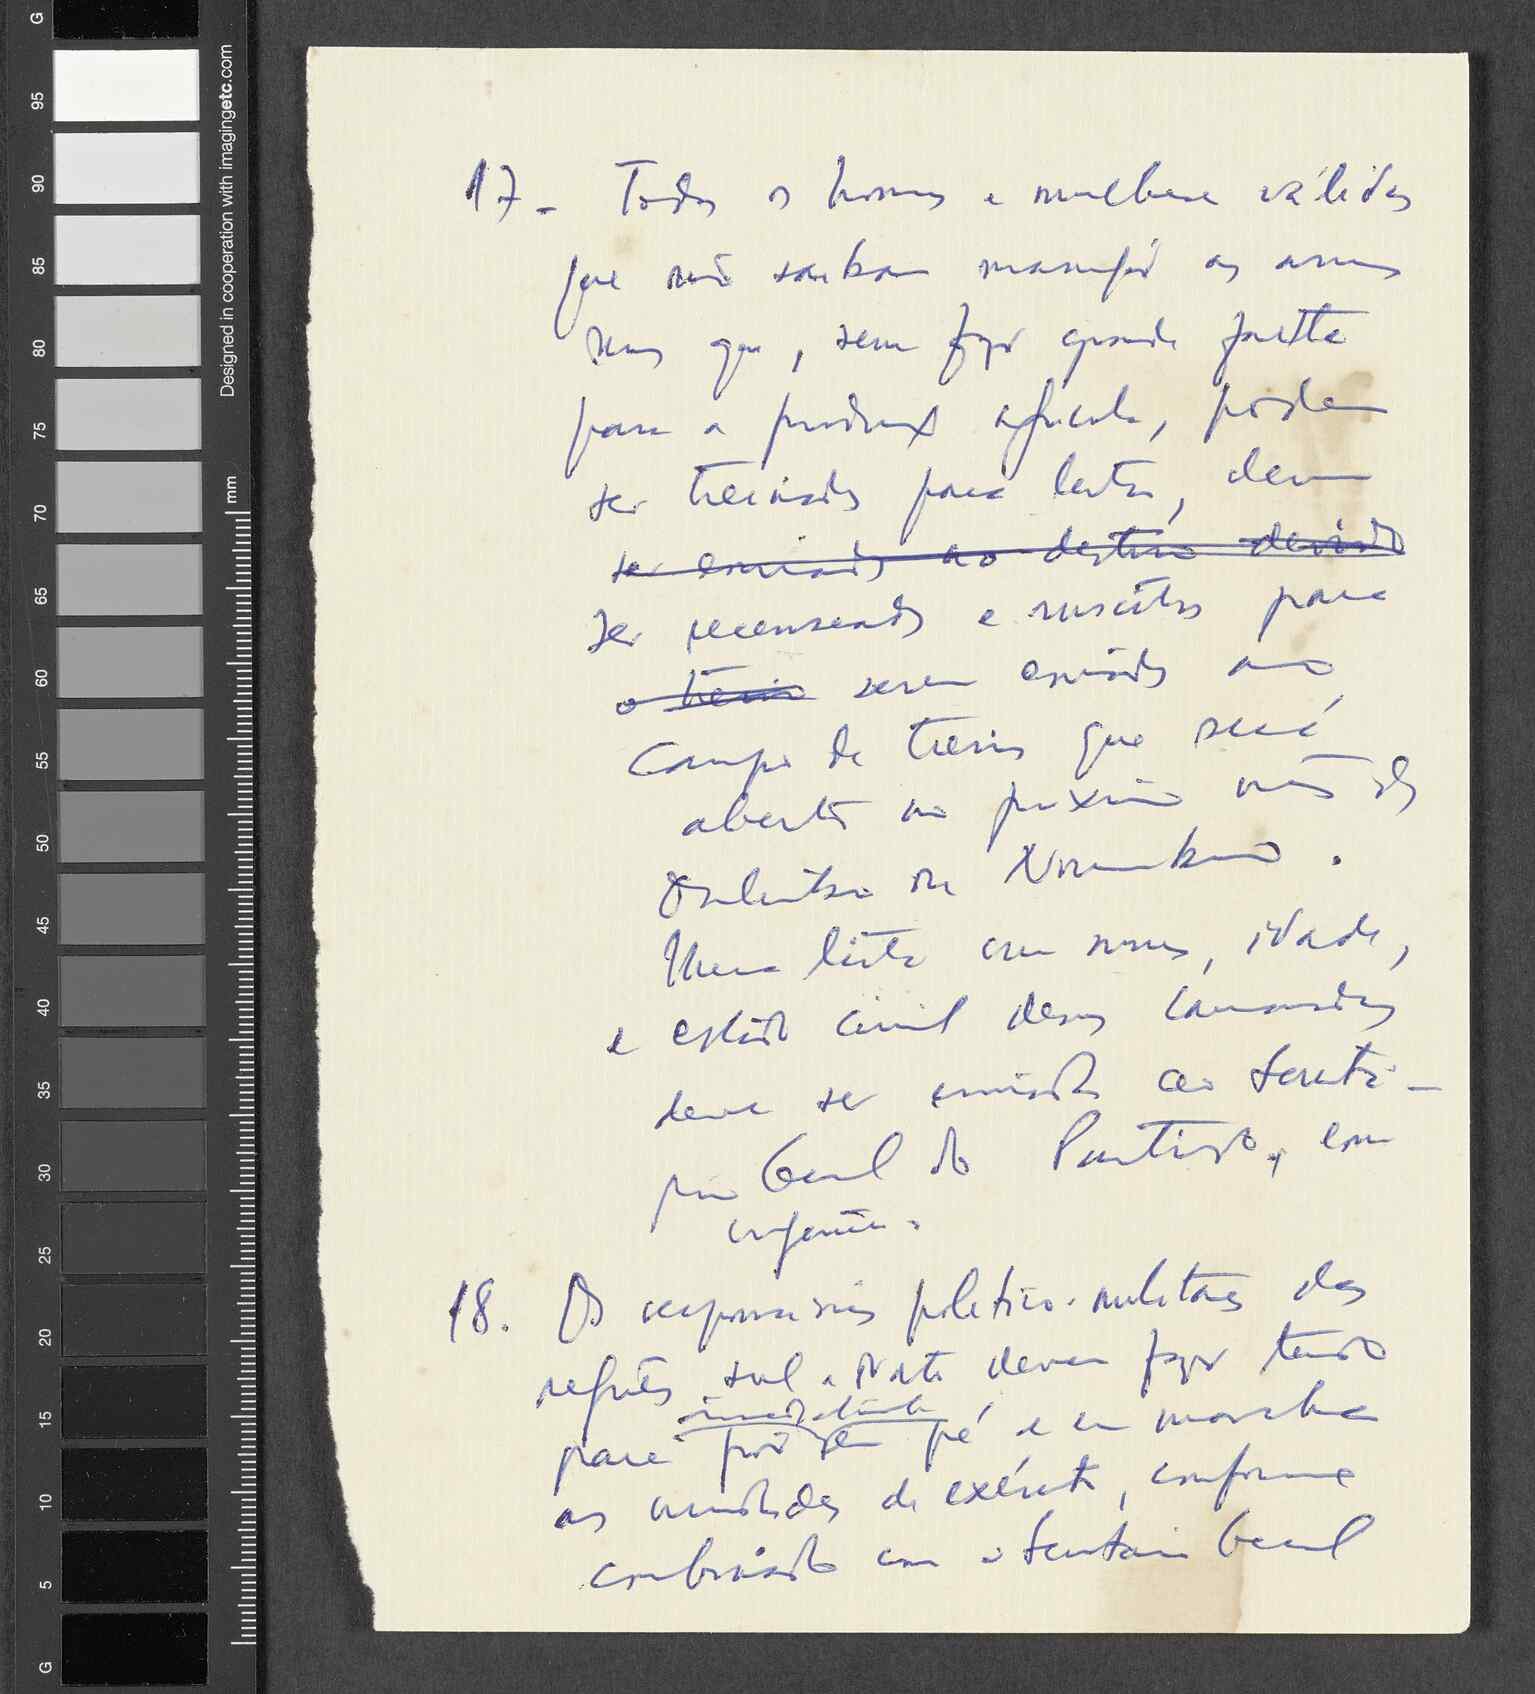 G
95
90
85
80
75
70
65
60
55
50
45
40
35
30
25
20
15
10
5
G
Designed in cooperation with imagingetc.com
mm
17 - Todos os homens e mulheres válidos
que não saibam manejar as armas
mas que, sem fazer grande falta
para a produção agrícola, podem
ser treinados para luta, devem
ser enviados ao destino devido
ser recenseados e inscritos para
o treino serem enviados ao
campo de treino que será
aberto no próximo mês de
Outubro ou Novembro.
Uma lista com nomes, idade,
e estado civil desses camaradas
deve ser enviada ao Secretá-
rio Geral do Partido, com
urgência.
18. Os responsáveis político-militares das
regiões Sul e Norte devem fazer tudo
imediatamente
para pôr de pé e em marcha
as unidades do exército, conforme
combinado com o Secretário Geral